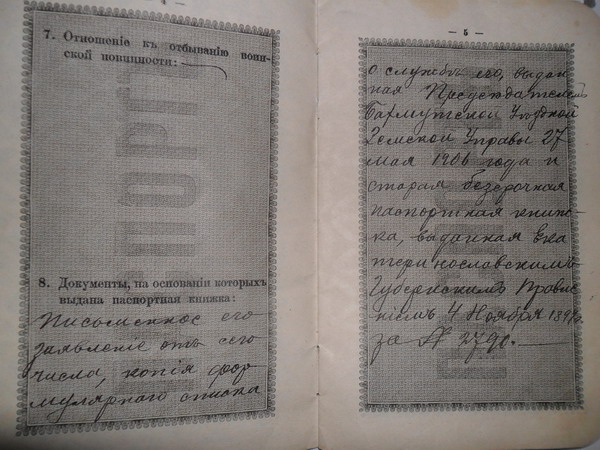 7. Отношеніе къ отбыванію воин-
ской повинности:
8. Документы, на основаніи которыхъ
выдана паспортная книжка:
Письменное его
заявленіе отъ сего
числа, копія фор
мулярнаго списка
— 5 —
о службѣ его, выдан
ная Предсѣдателемъ
Бахмутской Уѣздной
Земской Управы 27
мая 1906 года и
старая безсрочная
паспортная книж-
ка, выданная Ека
теринославскимъ
Губернскимъ Правле
ніемъ 4 Ноября
за №
ПАСПОРТ